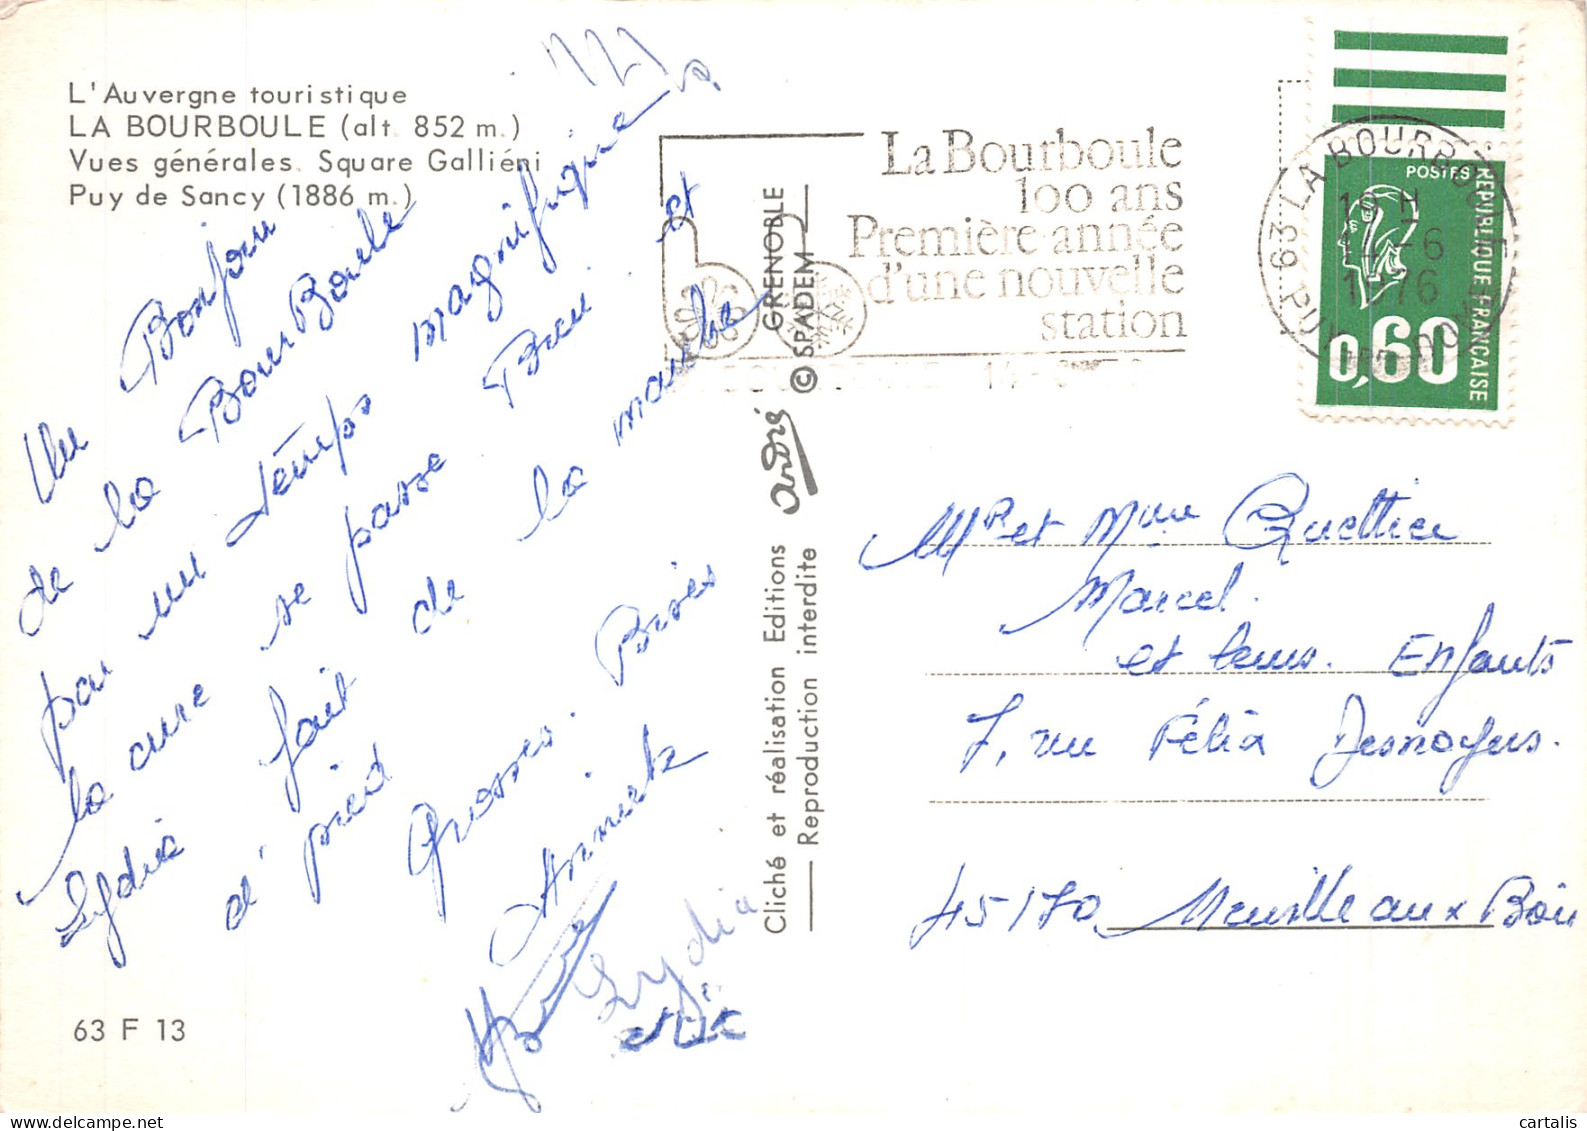 L'Auvergne touristique
LA BOURBOULE (alt. 852 m.)
Vues générales. Square Galliéni
Puy de Sancy (1886 m.)
Un Bonjour
de la BourBoule
par un temps magnifique
la cure se passe Bien
Lydie fait de la marche et
d' pied
Grosses Bises
Annick
Lydia
63 F 13
Cliché et réalisation Editions
Reproduction interdite
andré
GRENOBLE
© SPADEM
La Bourboule
100 ans
Première année
d'une nouvelle
station
63 LA BOURBOULE
PUY DE DOME
14-6
1976
POSTES
REPUBLIQUE FRANCAISE
0,60
Mr et Mme Quettier
Marcel.
et leurs. Enfants
7, rue Félix Desnoyers.
45170 Neuville aux Bois
cartalis